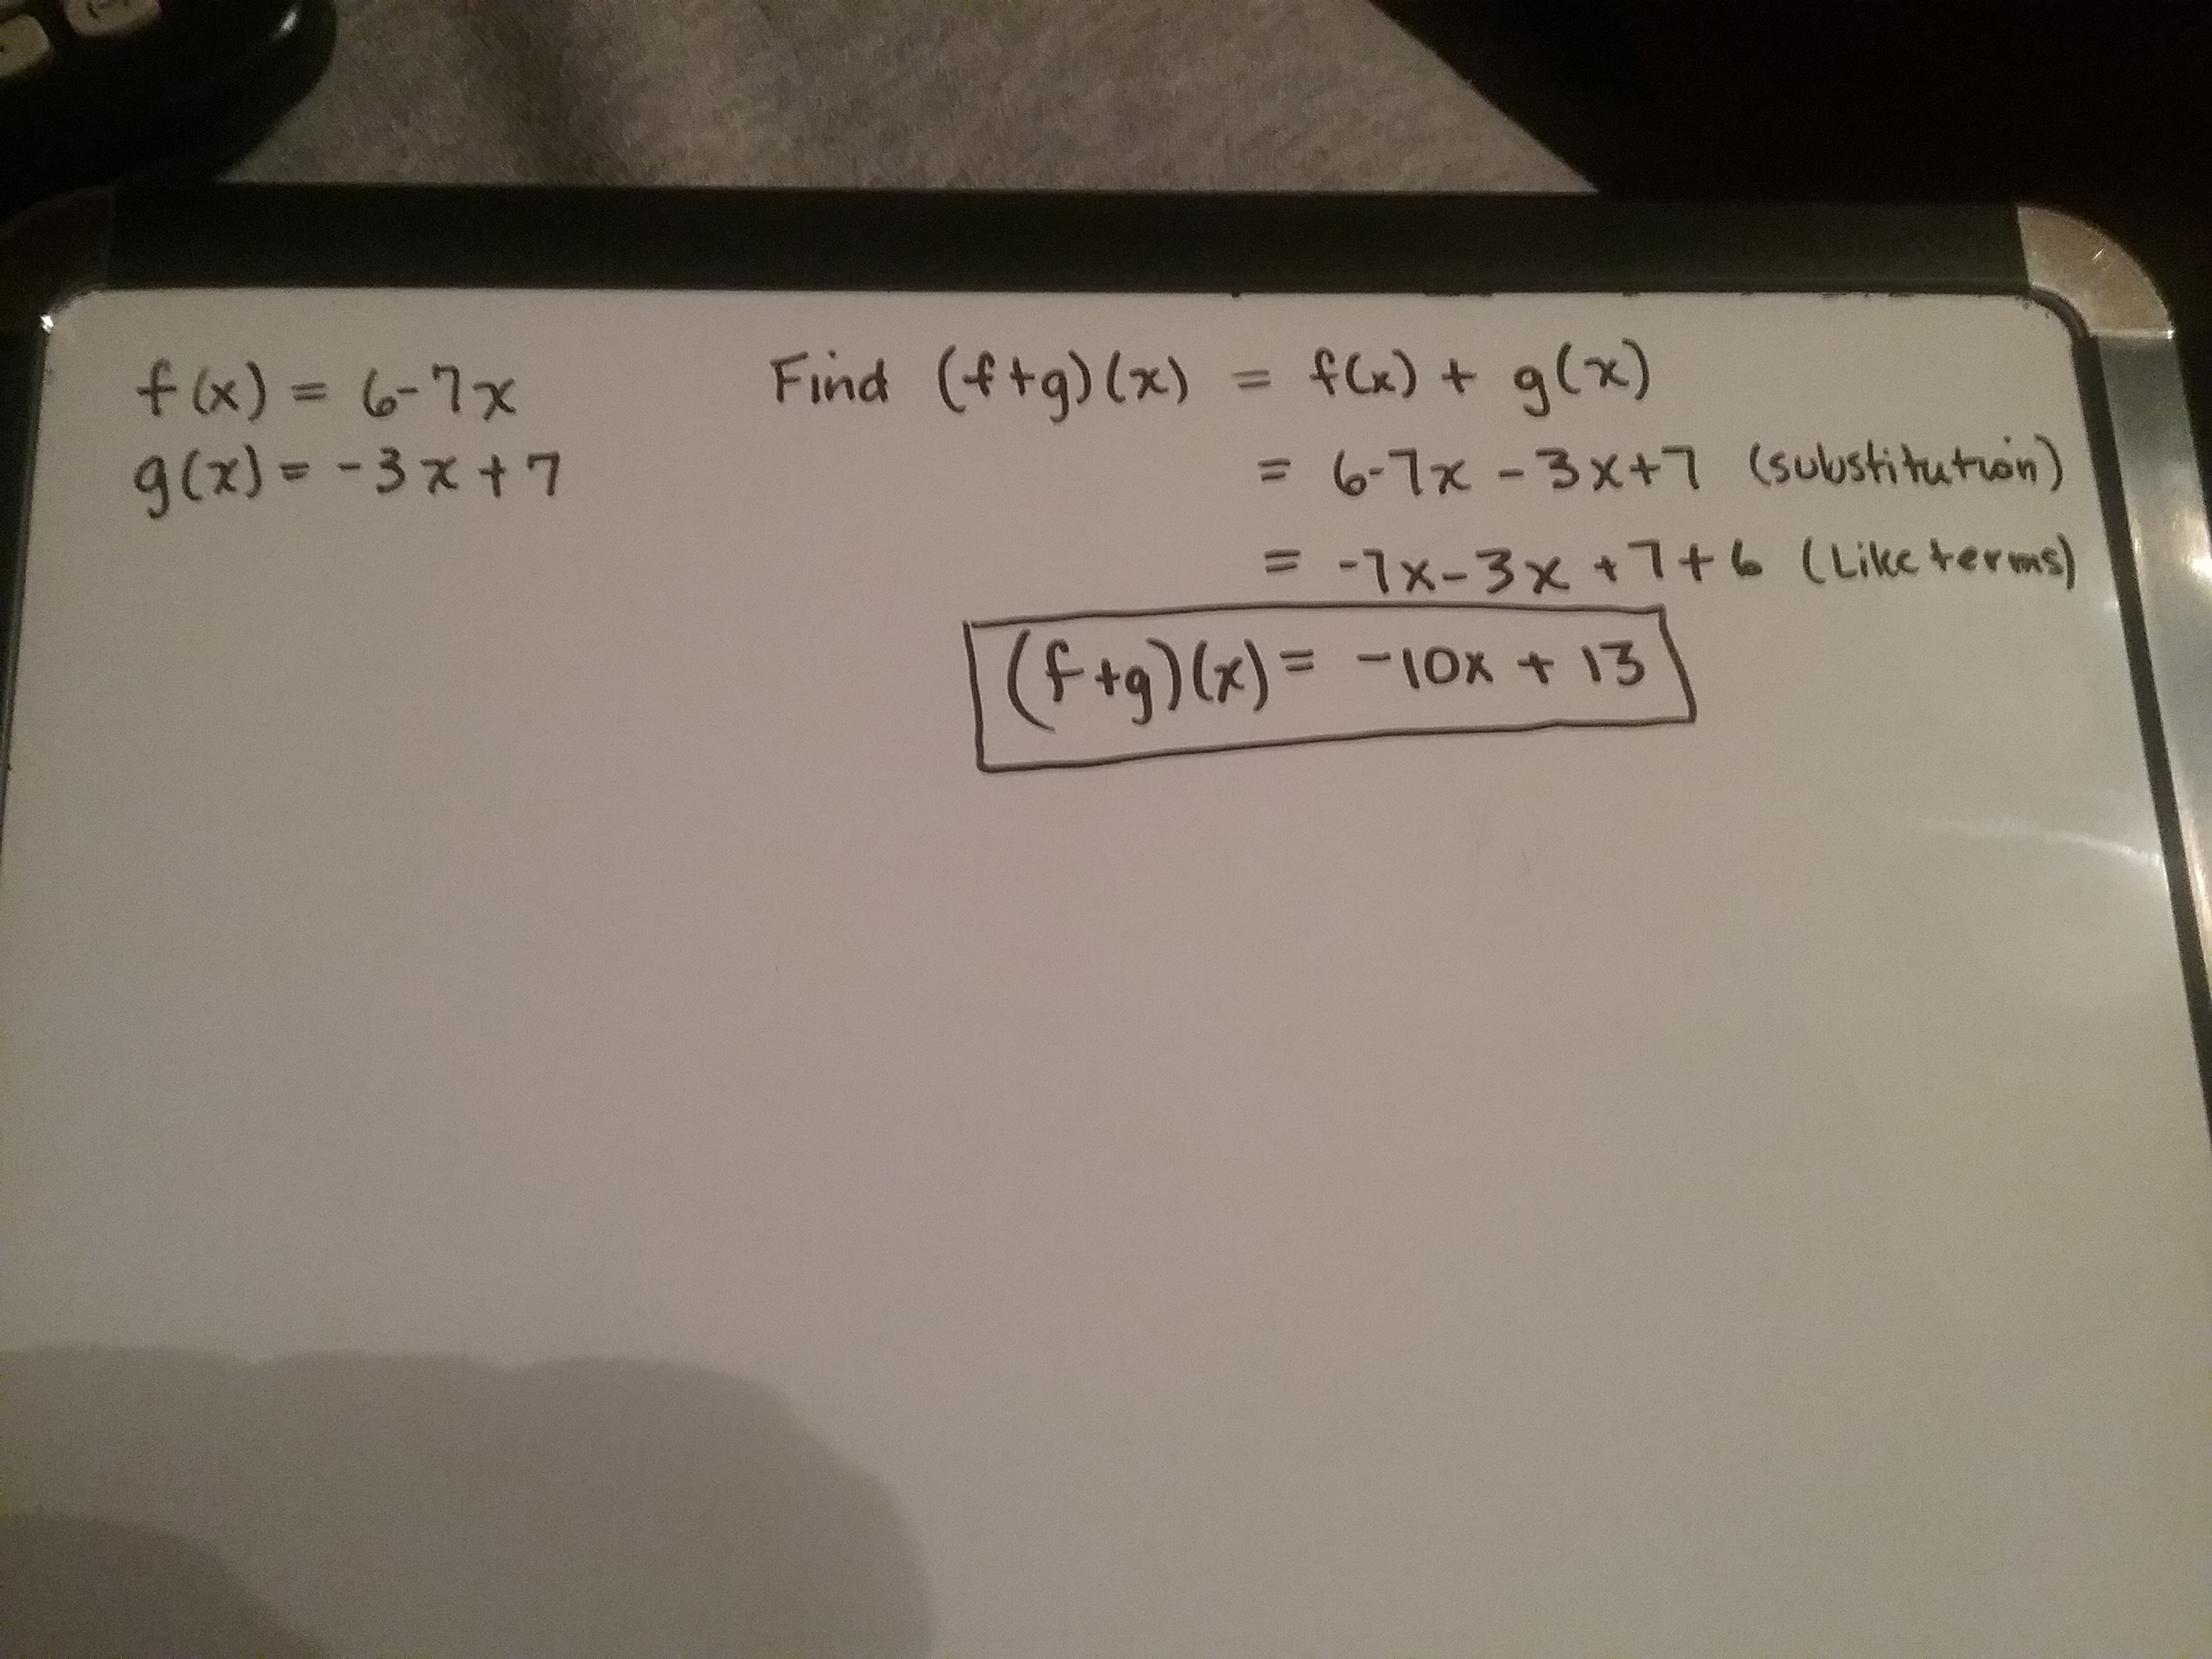 f(x) = 6-7x
g(x) = -3x+7
Find (f+g)(x) = f(x) + g(x)
= 6-7x - 3x+7 (substitution)
= -7x-3x +7+6 (Like terms)
(f+g)(x) = -10x + 13